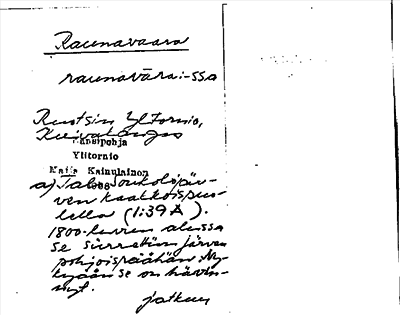 Raunavaara
raunavāra: -ssa
Ruotsin Ylitornio,
Kuivakangas
Länsipohja
Ylitornio
Maija Kainulainen
a) Talo Joukolojär-
ven kaakkoispuo-
lella (1:39 A).
1800-luvun alussa
se siirrettiin järven
pohjoispäähän. Ny-
kyään se on hävin-
nyt.
jatkuu